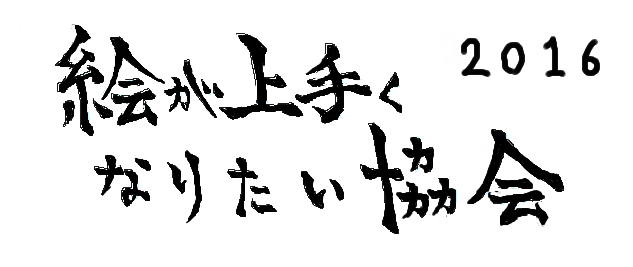 絵が上手く 2016
なりたい協会